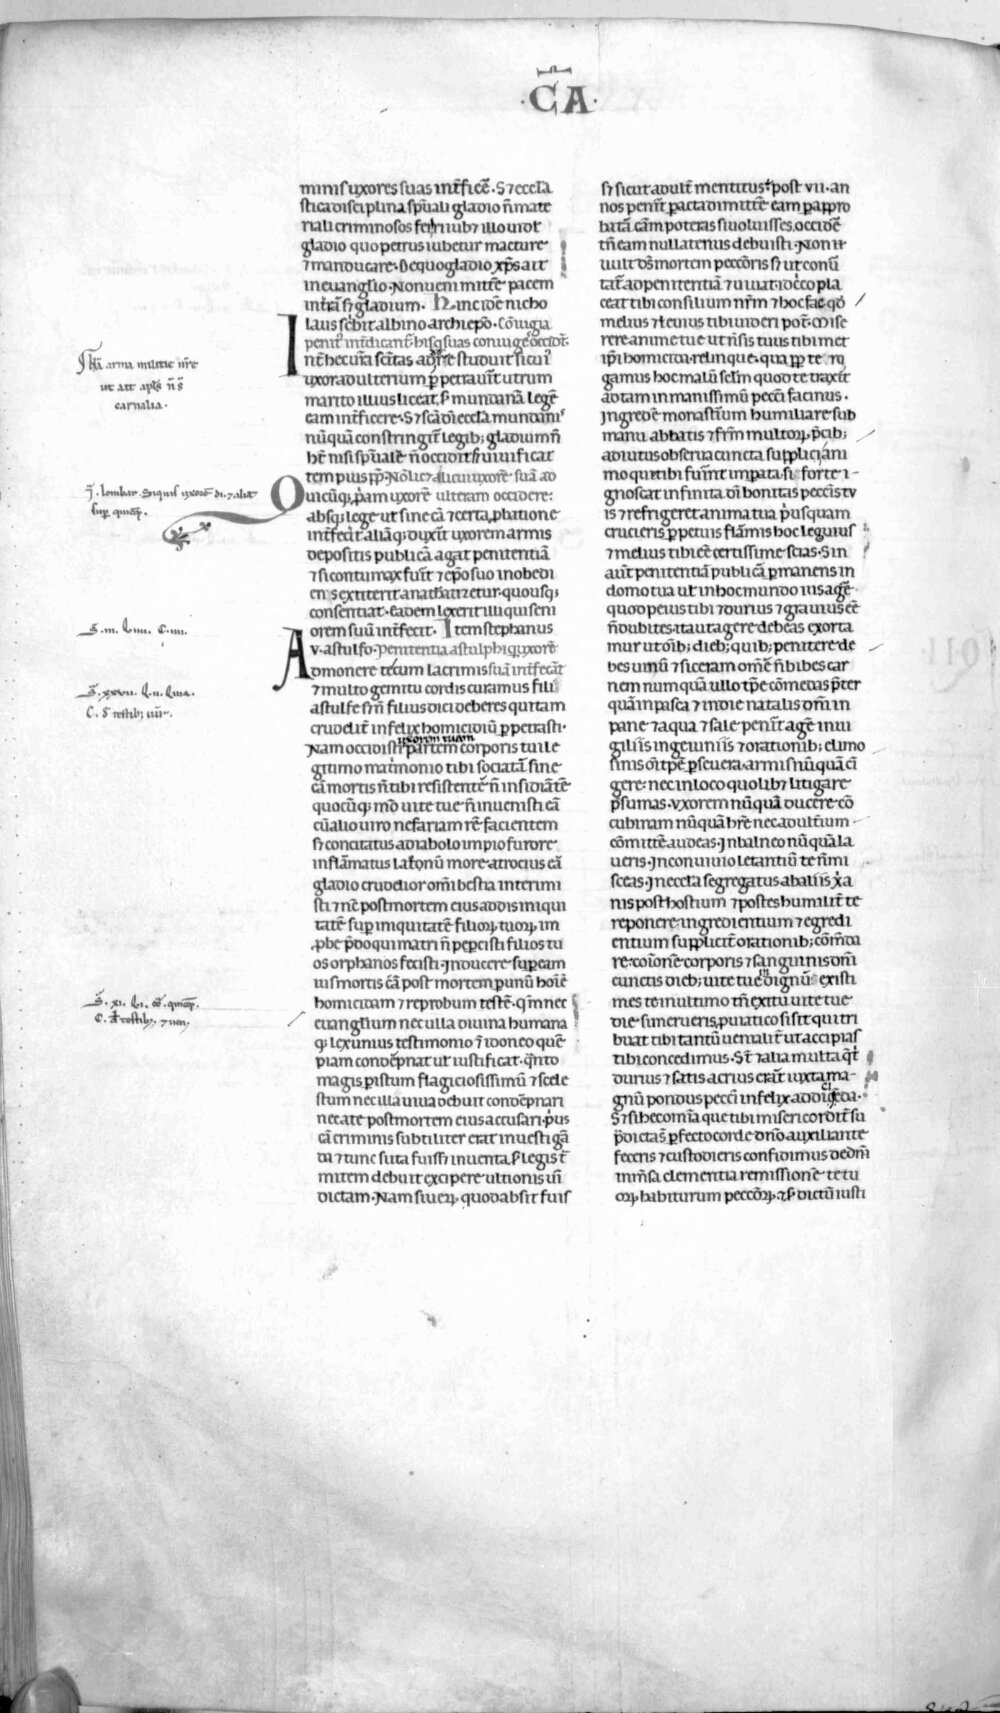 ·CA·
minis uxores suas int̄ficē. S⁊ eccl̄a
stica disciplina sp̄uali gladio ñ mate
riali criminosos ferri iub⁊ illo uidt̄
gladio quo petrus iubetur mactare
⁊ manducare. De quo gladio xp̄s ait
in euanglio. Non ueni mitt̄e pacem
in t̄rā s⁊ gladium. hinc idē nicho
laus sc̄bit albino archiep̄o. Cōiugia
penit̄ int̄dicant̄ his q̄ suas coniuges occidt̄.
Int̄ hec ur̄a sc̄itas adn̄re studuit si cui᾽
uxor adulterium ꝑpetrauit̄ utrum
marito illius liceat, s̄ mundanā legē
eam int̄ficere. S⁊ sc̄a dī eccl̄a mundanis
nūquā constringit̄ legib; gladium ñ
h̄t nisi sp̄uale ñ occidit s⁊ uiuificat
tem pius pp̄. Nō lic⁊ alicui uxorē suā ad
Quicūq; pp̄am uxorē ulteram occidere:
absq; lege ut sine cā ⁊ certa ꝓbatione
int̄fecit̄ aliāq; duxit̄ uxorem armis
depositis publicā agat penitentiā
⁊ si contumax fuit̄ ⁊ ep̄o suo inobedi
ens extiterit anathatizetur. quousq;
consentiat. eadem lex erit illi qui seni
orem suū int̄fecit. Item stephanus
v. astulfo. penitentia astulphi q̄ uxorē
Admonere tecum lacrimis suā int̄fecāt
⁊ multo gemitu cordis curamus fili
astulfe s⁊ ñ filius dici deberes qui tam
crudelit̄ infelix homicidiū ꝑpetrasti.
uxorem tuam
Nam occidisti partem corporis tui le
gitimo mat̄monio tibi sociatā sine
cā mortis ñ tibi resistentē ñ insidiātē
quocūq; mō uite tue ñ inuenisti eā
cū alio uiro nefariam rē facientem
s⁊ concitatus a diabolo impio furore
inflāmatus latronū more atrocius eā
gladio crudelior om̄i bestia interimi
sti ⁊ n̄c post mortem eius addis iniqui
tatē sup̄ iniquitatē filioꝝ tuoꝝ. im
ꝓbe p̄do qui matri ñ peꝑcisti filios tu
os orphanos fecisti. Inducere sup̄ eam
uis mortis cā post mortem ꝑ unū hoīē
homicidam ⁊ reprobum testē. qm̄ nec
euanglium nec ulla diuina humana
q; lex unius testimonio ⁊ idoneo quē
piam condēpnat ut iustificat. q̄nto
magis ꝑ istum flagiciosissimū ⁊ scele
stum nec illa uiua debuit condēpnari
nec ate post mortem eius accusari. p̄us
cā criminis subtiliter erat inuestigā
da ⁊ tunc si ita fuiss⁊ inuenta. s̄ legis t̄
mitem debuit excipere ultionis uī
dictam. Nam si ueꝝ quod absit fuis
s⁊ sicut adult̄ mentitus ē post vii. an
nos penit̄ pacta dimitt̄e eam ꝑ appro
batā cām poteras si uoluisses, occidē
tn̄ eam nullatenus debuisti. Non .n.
uult ds̄ mortem peccōris s⁊ ut conū
tat̄ ad penitentiā ⁊ uiuat. idc̄co pla
ceat tibi consilium nr̄m ⁊ hoc fac qd̄
melius ⁊ leuius tibi uideri pot̄. Mise
rere anime tue ut n̄ sis tuus tibi met
ip̄i homicida. relinque. qua ꝓp te ro
gamus hoc malū sclm̄ quod te traxit
ad tam inmanissimū pecci facinus.
Ingredē monast̄ium humiliare sub
manu abbatis ⁊ frm̄ multoꝝ p̄cib;
adiutus obserua cuncta simplici ani
mo que tibi fuīnt impata. si forte i-
gnoscat infinita dī bonitas peccīs tu
is ⁊ refrigeret anima tua p̄usquam
crucieris ꝑpetuis flāmis. hoc leguius
⁊ melius tibi eē certissime scias. Sin
aūt penitentiā publicā ꝑmanens in
domo tua ut in hoc mundo uis agē
quod peius tibi ⁊ durius ⁊ grauius eē
ñ dubites ita ut agere debeas exorta
mur. ut oīb; dieb; quib; penitere de
bes uinū ⁊ siceram om̄ē ñ bibes car
nem num quā ullo tp̄e cōmedas p̄ter
quā in pasca ⁊ in die natalis dn̄i in
pane ⁊ aqua ⁊ sale penit̄ agē in ui
giliis in ieiuniis ⁊ orationib; elimo
sinis oī tp̄e ꝑseuera. armis nūquā cī
gere. nec in loco quolib⁊ litigare
p̄sumas. Uxorem nūquā ducere cō
cubinam nūquā hr̄e nec adult̄ium
cōmittē audeas. In balneo nūquā la
ueris. In conuiuio letantiū te ñ mi
sceas. In eccl̄a segregatus ab aliis xp̄a
nis post hostium ⁊ postes humilit̄ te
reponere. ingredientium ⁊ egredi
entium supplicit̄ orationib; cōm̄da
re. cōionē corporis ⁊ sanguinis dn̄i
cunctis dieb; uite tue indignū existi
mes te in ultimo tn̄ exitu uite tue
die si merueris ꝓ uiatico si sit qui tri
buat tibi tantū uenialit̄ ut accipias
tibi concedimus. St̄ ⁊ alia multa q̄ t̄
durius ⁊ satis acrius erāt iuxta ma-
gnū pondus pecci infelix addicēda.
S⁊ si hec om̄ia que tibi misericordit̄ sū
p̄dicta ꝑfecto corde dn̄o auxiliante
feceris ⁊ custodieris confidimus de dn̄i
inm̄sa clementia remissionē te tu
oꝝ habiturum peccōꝝ. ⁊ s̄ dictū iusti
arma militie nr̄e
ut ait apl̄s ñ s̄
carnalia.
j. lombar. Siquis uxorē
S. iii. l. iiii. c. iii.
S. xxvii. l. ii.
C. de testib;
S. xi.
C. de testib;